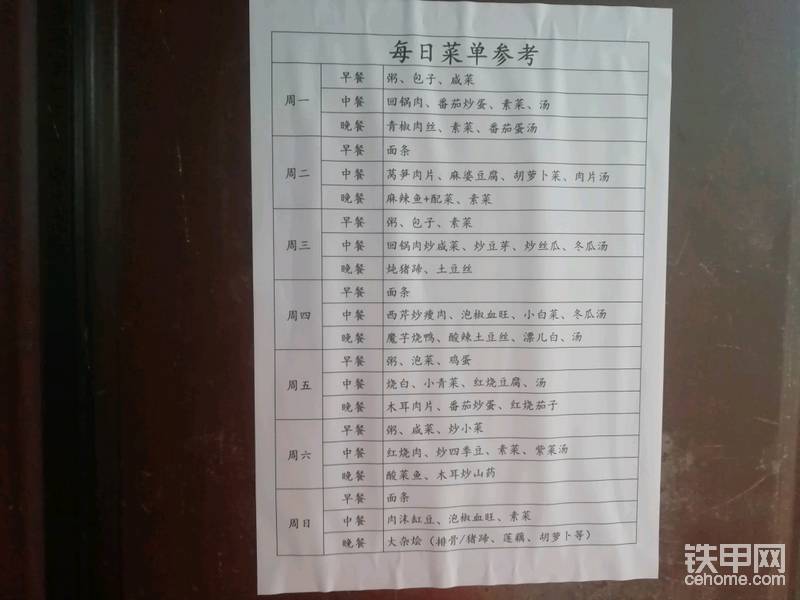 每日菜单参考
周一
早餐 粥、包子、咸菜
中餐 回锅肉、番茄炒蛋、素菜、汤
晚餐 青椒肉丝、素菜、番茄蛋汤
周二
早餐 面条
中餐 莴笋肉片、麻婆豆腐、胡萝卜菜、肉片汤
晚餐 麻辣鱼+配菜、素菜
周三
早餐 粥、包子、素菜
中餐 回锅肉炒咸菜、炒豆芽、炒丝瓜、冬瓜汤
晚餐 炖猪蹄、土豆丝
周四
早餐 面条
中餐 西芹炒瘦肉、泡椒血旺、小白菜、冬瓜汤
晚餐 魔芋烧鸭、酸辣土豆丝、漂儿白、汤
周五
早餐 粥、泡菜、鸡蛋
中餐 烧白、小青菜、红烧豆腐、汤
晚餐 木耳肉片、番茄炒蛋、红烧茄子
周六
早餐 粥、咸菜、炒小菜
中餐 红烧肉、炒四季豆、素菜、紫菜汤
晚餐 酸菜鱼、木耳炒山药
周日
早餐 面条
中餐 肉沫缸豆、泡椒血旺、素菜
晚餐 大杂烩（排骨/猪蹄、莲藕、胡萝卜等）
铁甲网
cehome.com